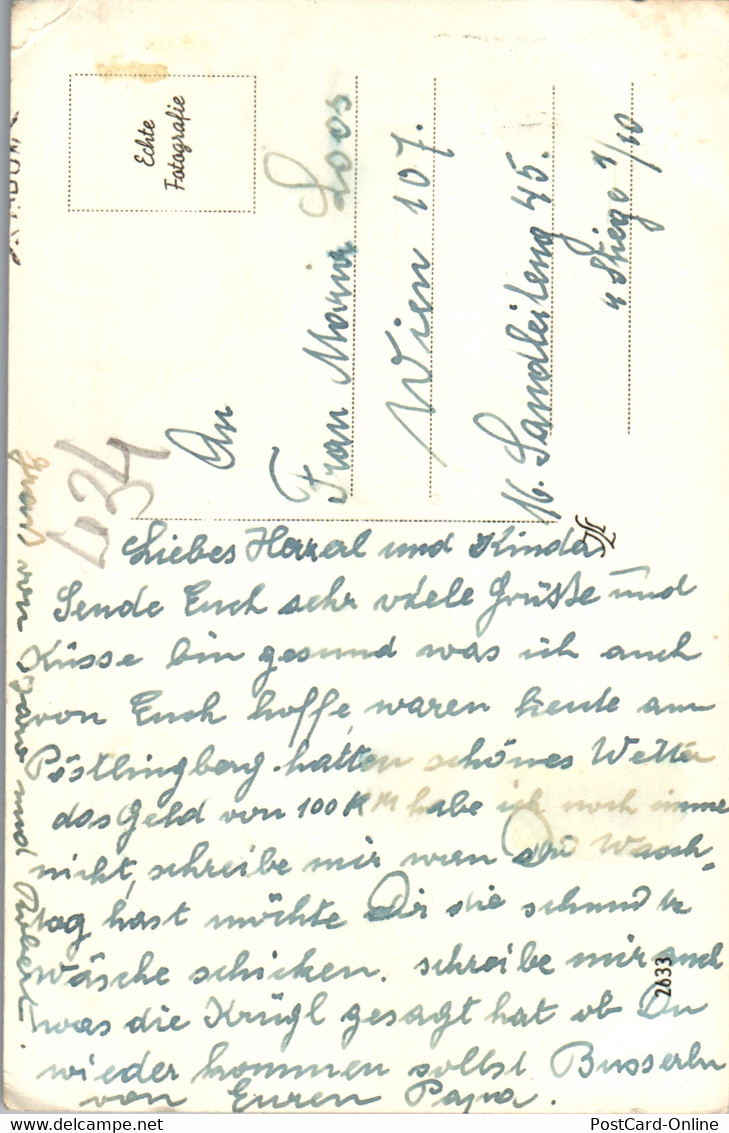 Echte
Fotografie
An
Frau Marie Loos
Wien 107.
16. Sandleiteng 45.
4 Stiege 9/10
434
Liebes Hazerl und Kinder
Sende Euch sehr viele Grüße und
Küsse bin gesund was ich auch
von Euch hoffe, waren heute am
Pöstlingberg hatten schönes Wetter
das Geld von 100 RM habe ich noch immer
nicht, schreibe mir wan Du Wasch-
tag hast möchte Dir die schmutz
Wäsche schicken. schreibe mir auch
was die Krügl gesagt hat ob Du
wieder kommen sollst Busserln
von Euren Papa.
von und Robert.
2633
PostCard-Online